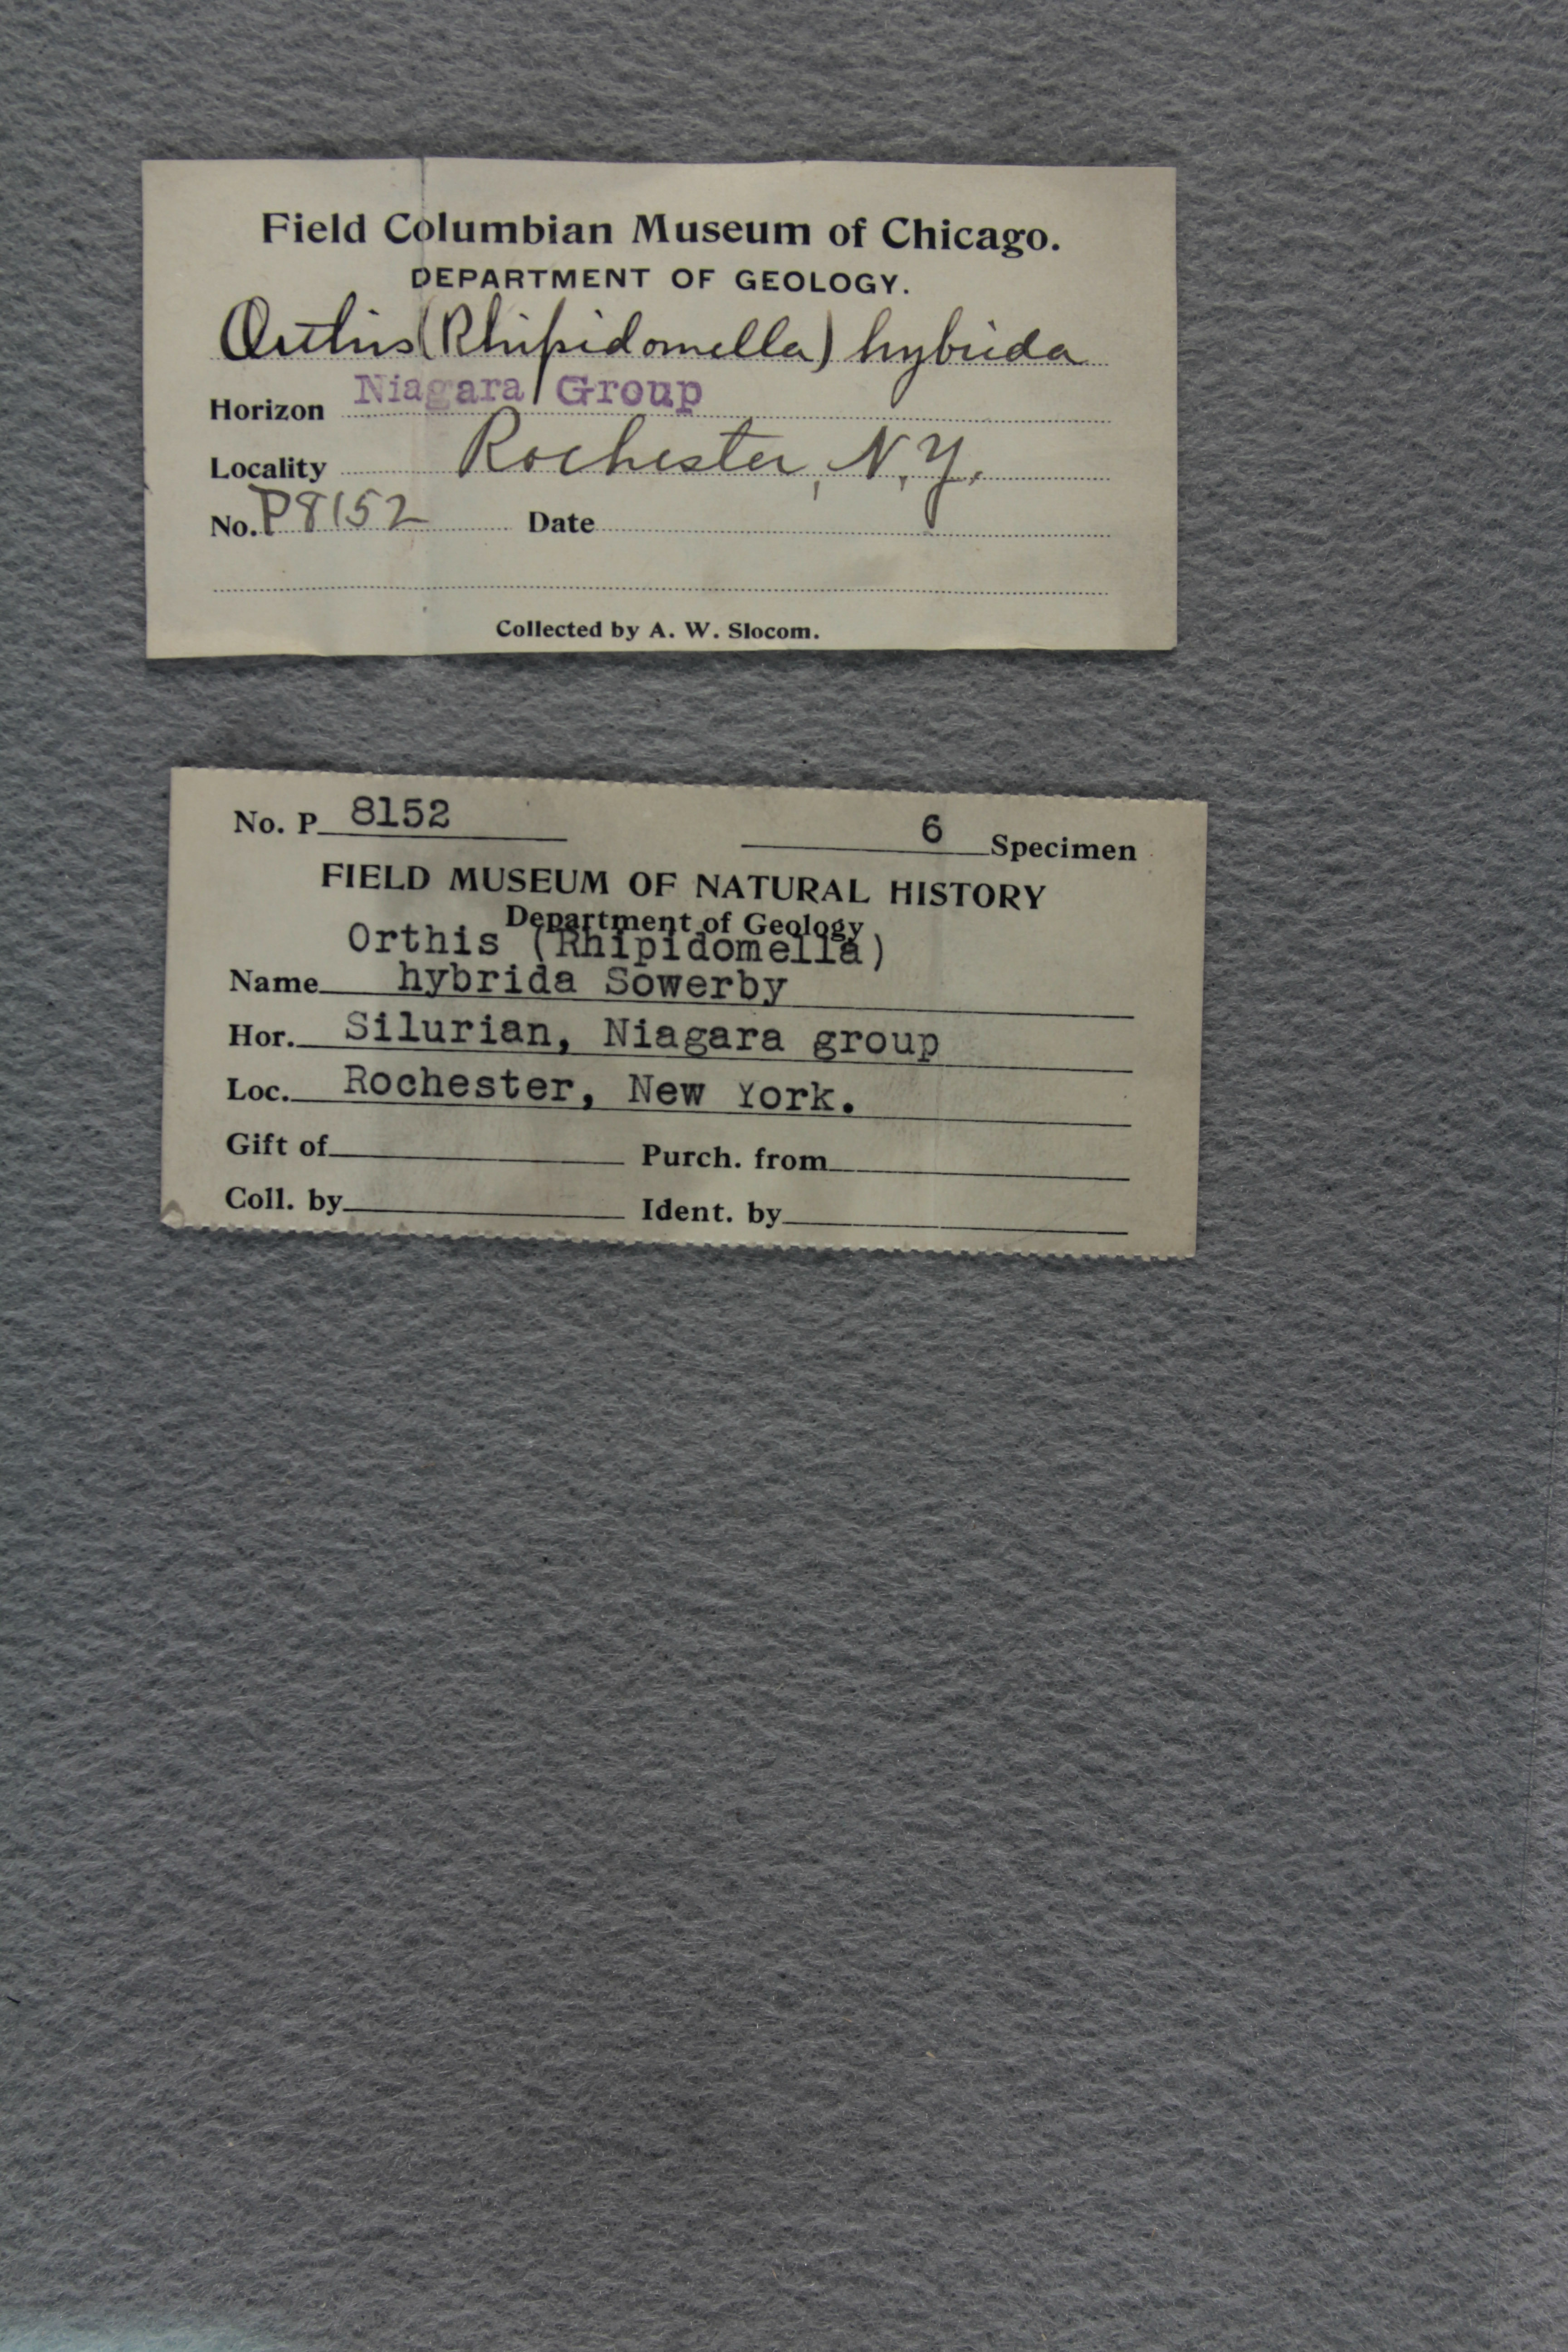 Field Columbian Museum of Chicago.
DEPARTMENT OF GEOLOGY.
Orthis (Rhipidomella) hybrida
Horizon Niagara Group
Locality Rochester, N.Y.
No. P8152 Date
Collected by A. W. Slocom.
No. P 8152 6 Specimen
FIELD MUSEUM OF NATURAL HISTORY
Department of Geology
Orthis (Rhipidomella)
Name hybrida Sowerby
Hor. Silurian, Niagara group
Loc. Rochester, New York.
Gift of Purch. from
Coll. by Ident. by